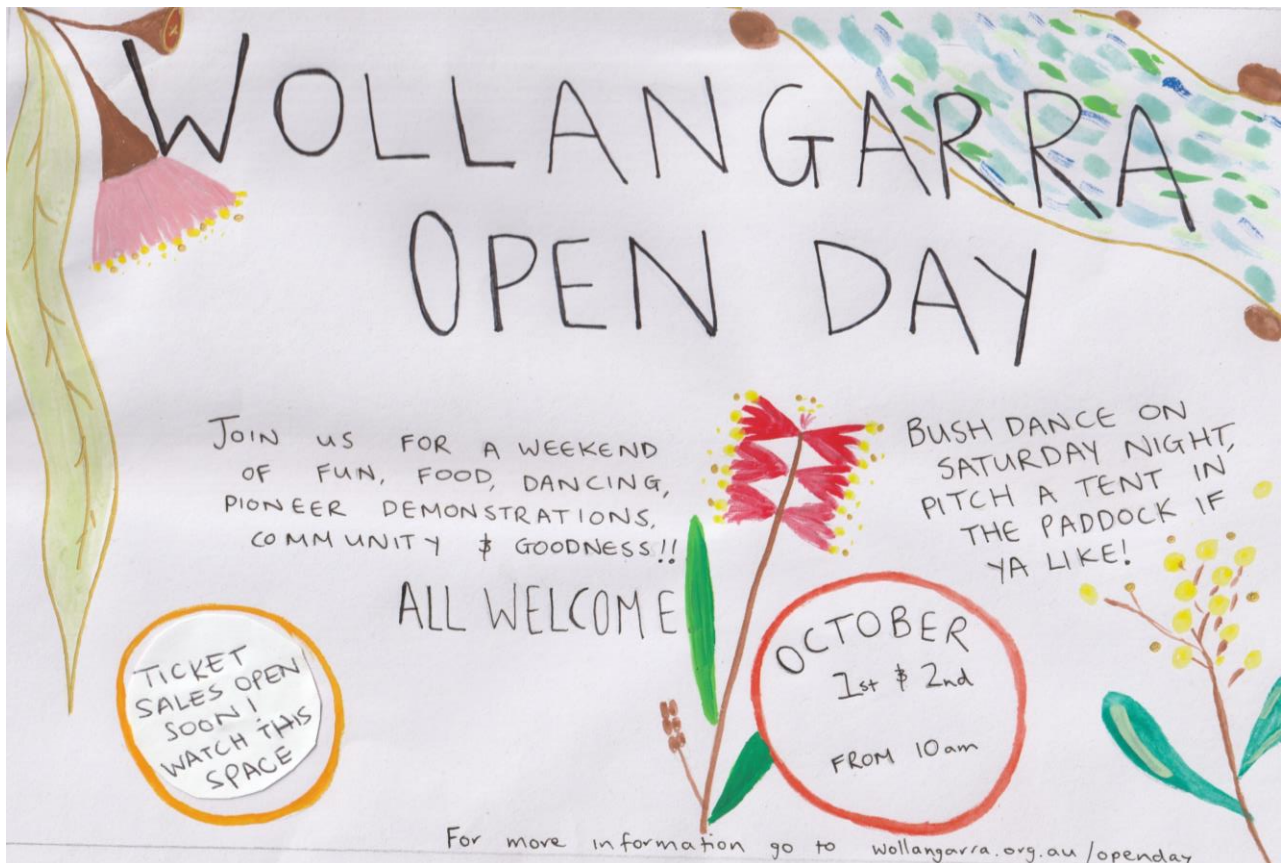 WOLLANGARRA
OPEN DAY
JOIN US FOR A WEEKEND
OF FUN, FOOD, DANCING,
PIONEER DEMONSTRATIONS,
COMMUNITY & GOODNESS!!
ALL WELCOME
BUSH DANCE ON
SATURDAY NIGHT,
PITCH A TENT IN
THE PADDOCK IF
YA LIKE!
TICKET
SALES OPEN
SOON!
WATCH THIS
SPACE
OCTOBER
1st & 2nd
FROM 10am
For more information go to wollangarra.org.au/openday